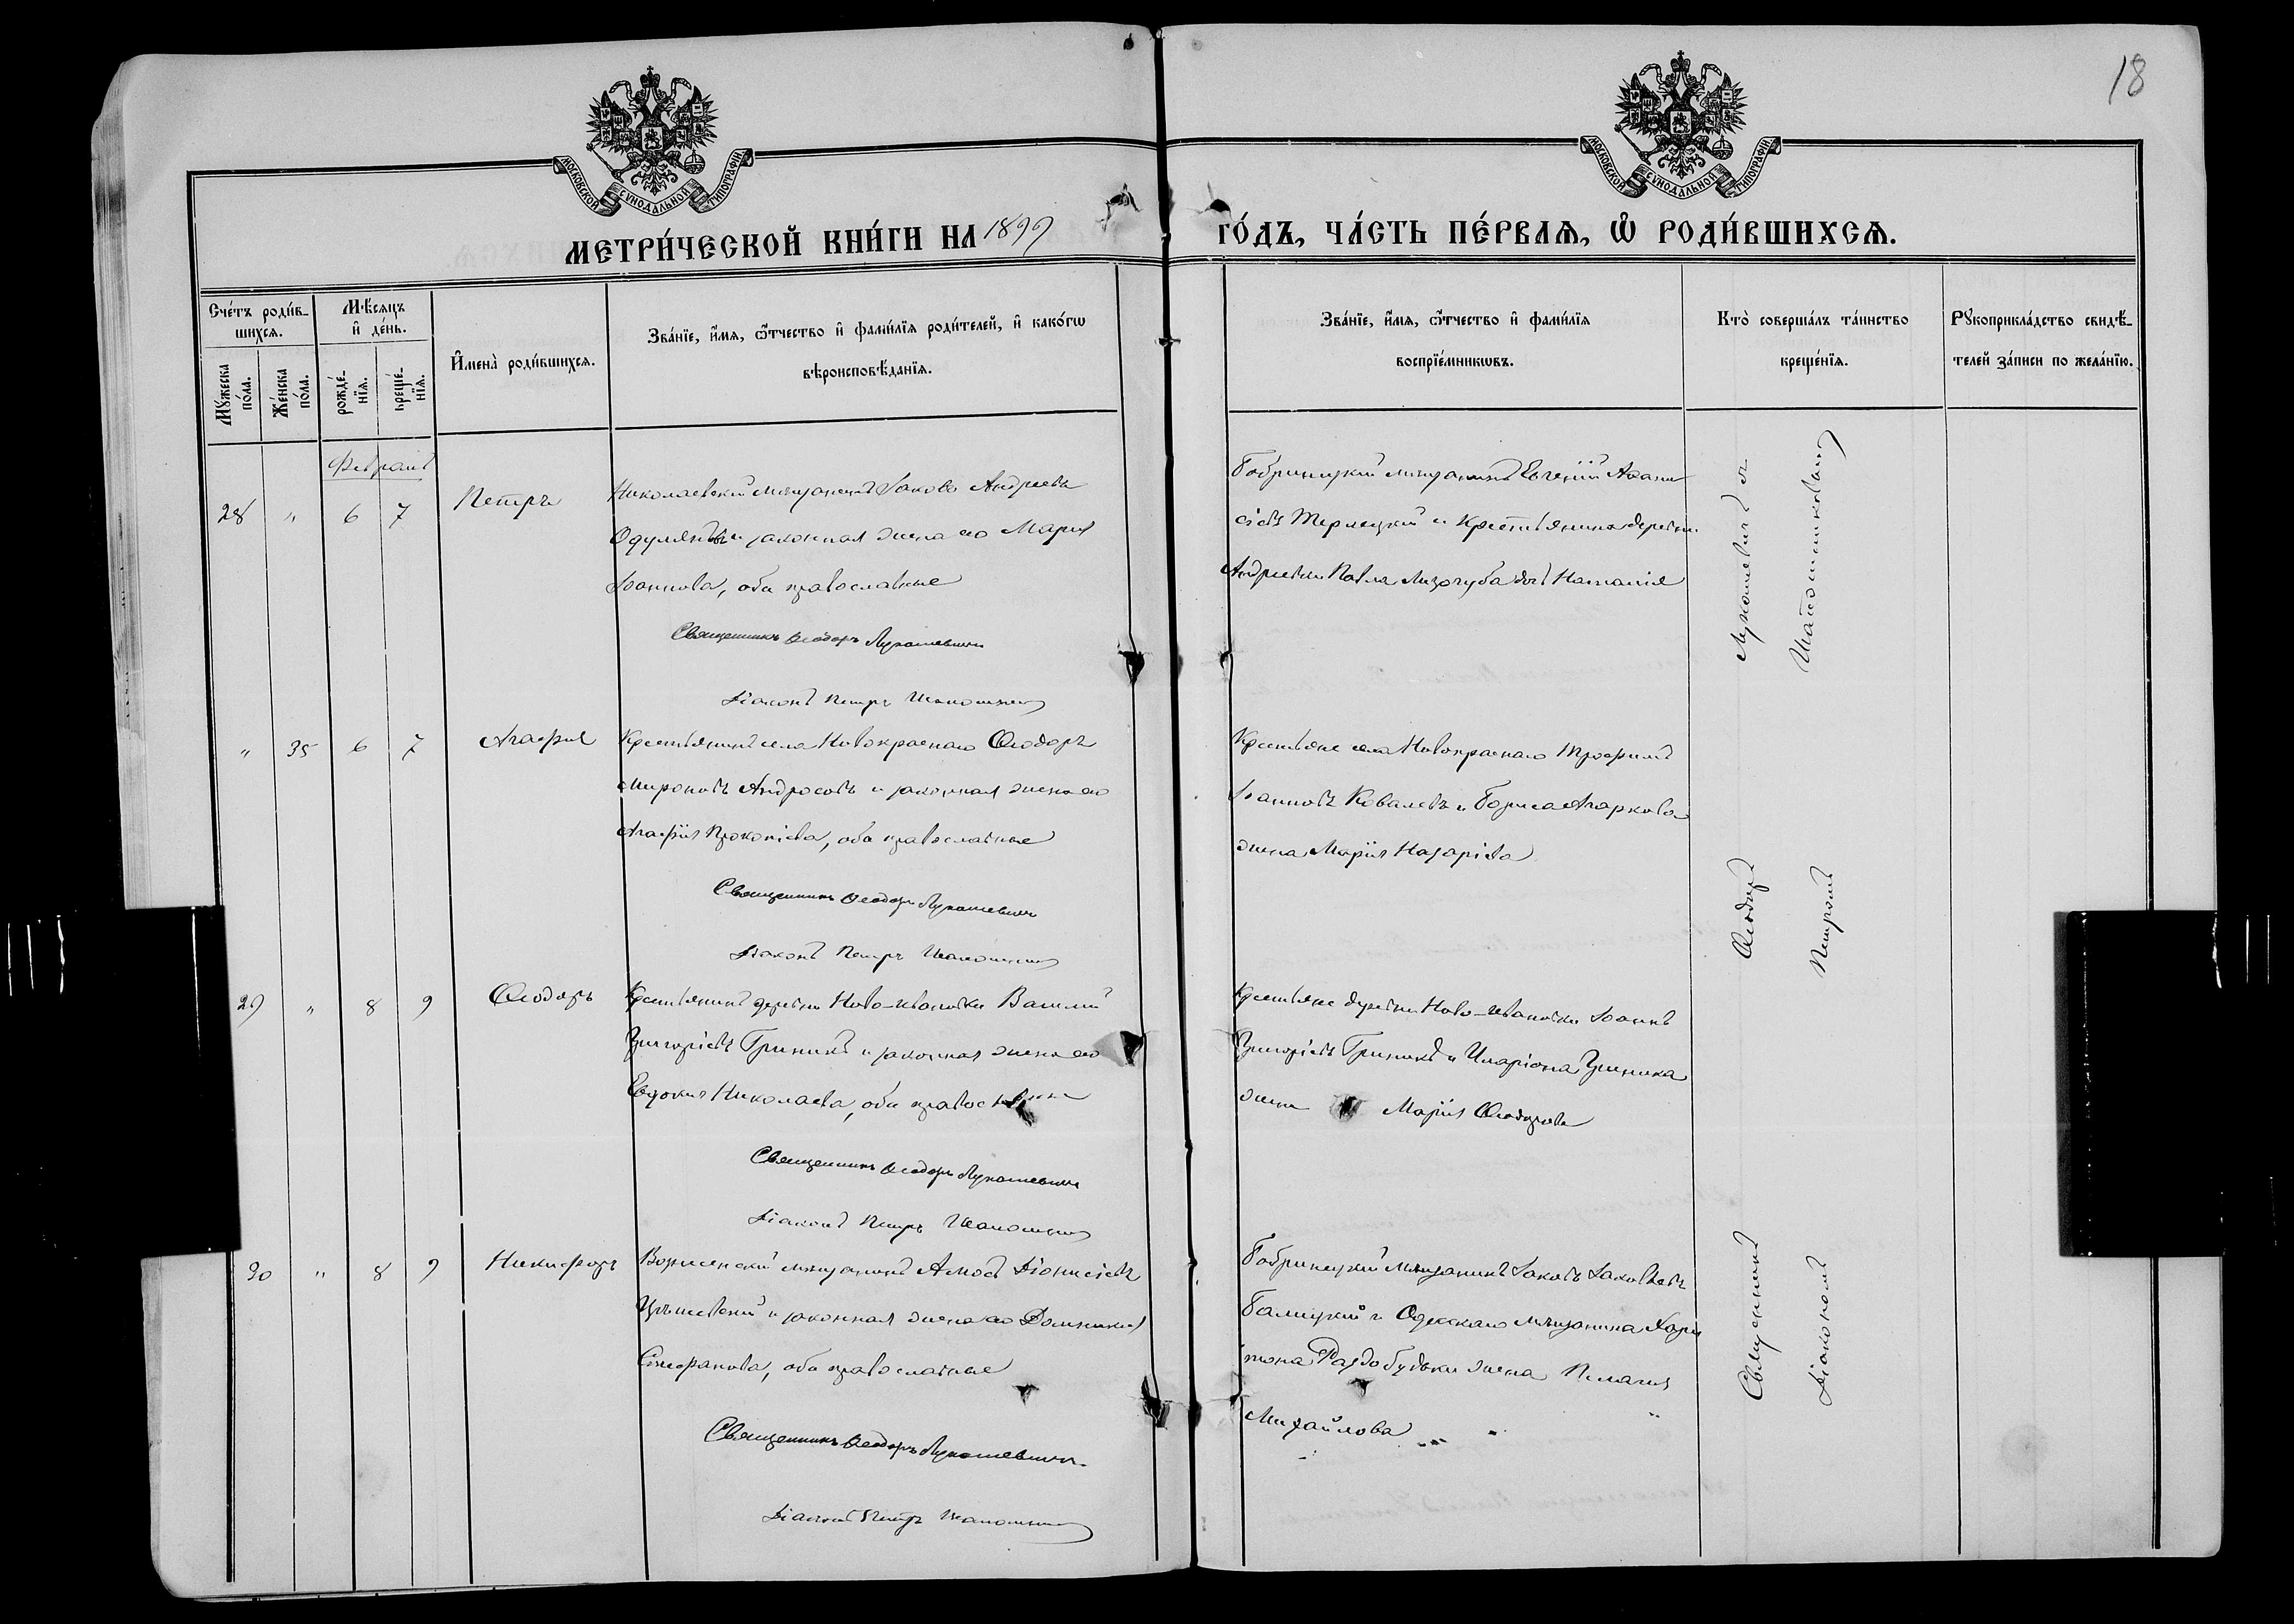 18
МОСКОВСКОЙ СѴНОДАЛЬНОЙ ТИПОГРАФІИ
МОСКОВСКОЙ СѴНОДАЛЬНОЙ ТИПОГРАФІИ
МЕТРИ́ЧЕСКОЙ КНИ́ГИ НА 1899
ГО́ДЪ, ЧА́СТЬ ПЕ́РВАЯ, Ѡ РОДИ́ВШИХСЯ.
Сче́тъ роди́в-
шихся.
Мѣ́сяцъ
и де́нь.
Мꙋ́жеска
по́ла.
Же́нска
по́ла.
рожде́-
нїя.
креще́-
нїя.
Имена̀ роди́вшихся.
Зва́нїе, и́мя, ѻ҆́тчество и фами́лїя роди́телей, и како́гѡ
вѣроисповѣ́данїя.
Зва́нїе, и́мя, ѻ҆́тчество и фами́лїя
воспрїе́мникѡвъ.
Кто̀ соверша́лъ та́инство
креще́нїя.
Рꙋкоприкла́дство свидѣ́-
телей за́писи по жела́нїю.
Февраль
28 " 6 7 Петръ
Николаевскій мѣщанинъ Іаковъ Андреевъ
и законная жена его Марія
Іоаннова, оба православные
Священникъ Ѳеодоръ Лукашевичъ
Діаконъ Петръ
Бобринецкій мѣщанинъ Евгеній Аѳана
сіевъ Терлецкій и крестьянина деревни
Андреевки Павла дочь Наталія
" 35 6 7 Агафія
Крестьянинъ села Новокраснаго Ѳеодоръ
Мироновъ Андросовъ и законная жена его
Агафія Прокопіева, оба православные
Священникъ Ѳеодоръ Лукашевичъ
Діаконъ Петръ
Крестьяне села Новокраснаго Трофимъ
Іоанновъ Ковалевъ и Бориса Агаркова
жена Марія Назаріева
29 " 8 9 Ѳеодоръ
Крестьянинъ деревни Ново-Ивановки Василій
Григоріевъ Гриникъ и законная жена его
Евдокія Николаева, оба православные
Священникъ Ѳеодоръ Лукашевичъ
Діаконъ Петръ
Крестьяне деревни Ново-Ивановки Іоаннъ
Григоріевъ Гриникъ и Иларіона Гриника
жена Марія Ѳеодорова
30 " 8 9 Никифоръ
Вознесенскій мѣщанинъ Амосъ Діонисіевъ
и законная жена его Домникія
Стефанова, оба православные
Священникъ Ѳеодоръ Лукашевичъ
Діаконъ Петръ
Бобринецкій мѣщанинъ Іаковъ Іаковлевъ
Балицкій и Одесскаго мѣщанина Хари
тона Раздобудьки жена Пелагія
Михайлова
Священникъ Ѳеодоръ Лукашевичъ съ
Діакономъ Петромъ